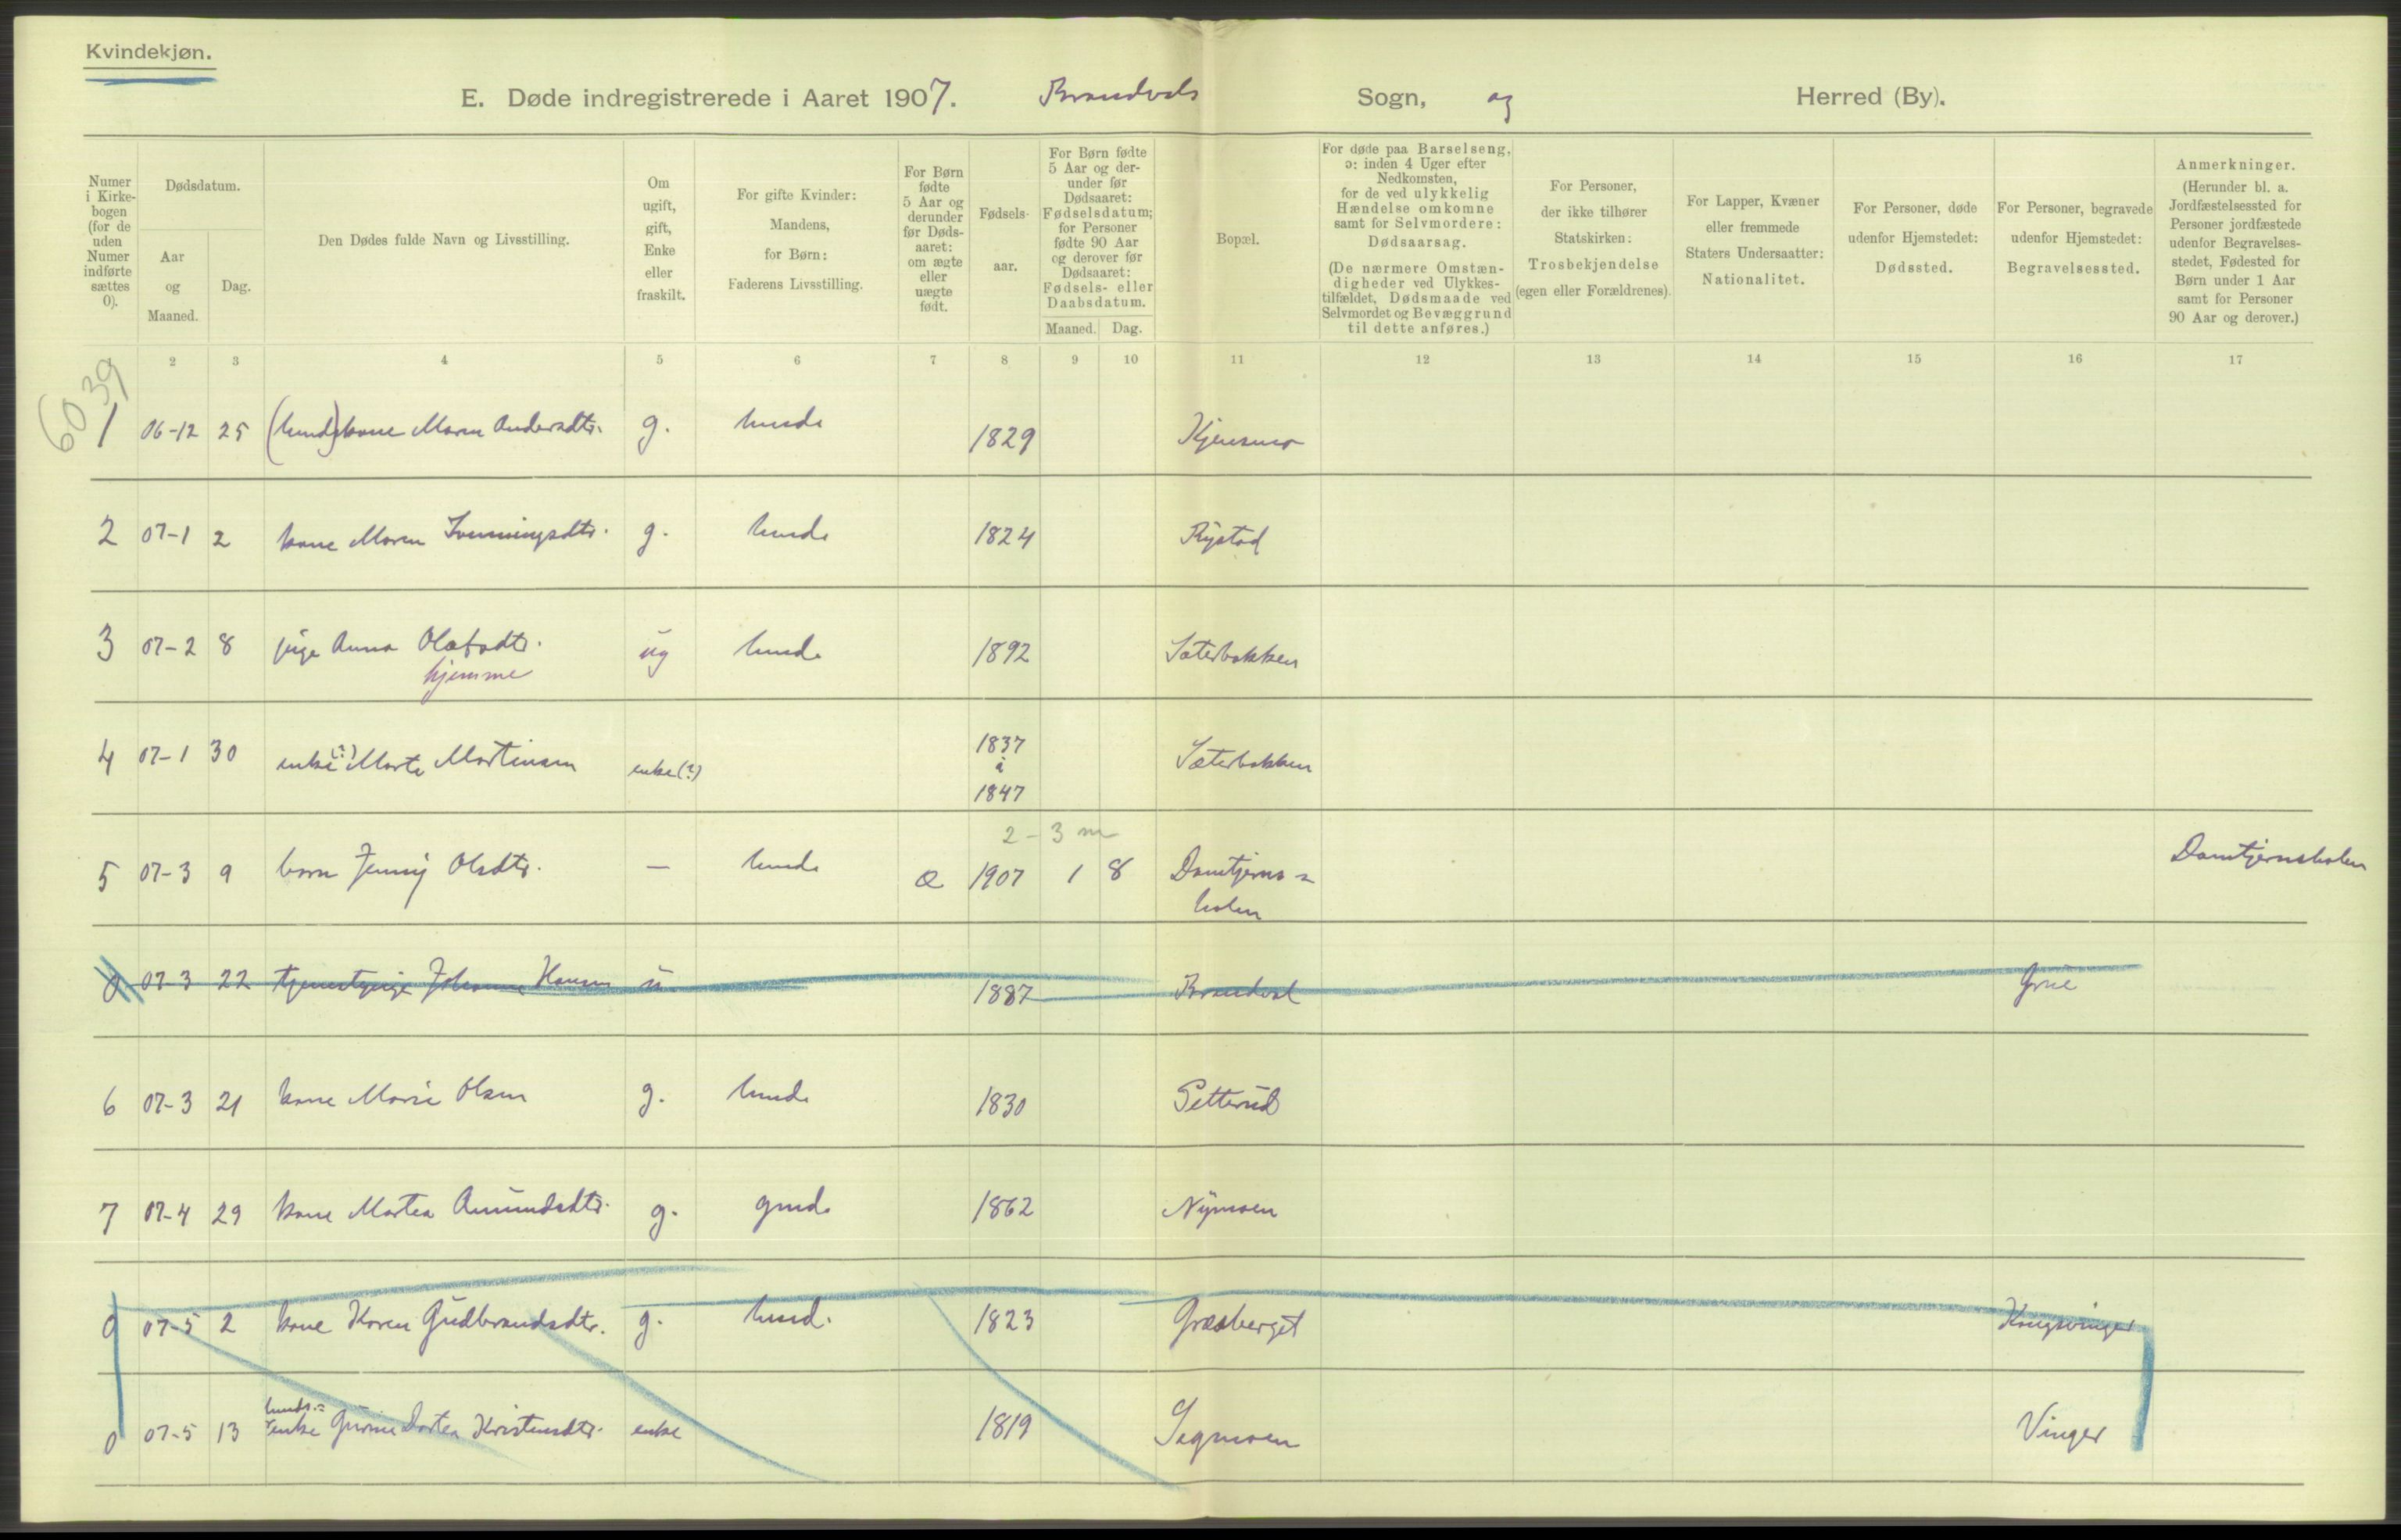 Kvindekjøn.
E. Døde indregistrerede i Aaret 1907. Brandvals Sogn, og Herred (By).
Numer i Kirkebogen (for de uden Numer indførte sættes 0).
Dødsdatum.
Aar og Maaned.
Dag.
Den Dødes fulde Navn og Livsstilling.
Om ugift, gift, Enke eller fraskilt.
For gifte Kvinder: Mandens, for Børn: Faderens Livsstilling.
For Børn fødte 5 Aar og derunder før Dødsaaret: om ægte eller uægte født.
Fødselsaar.
For Børn fødte 5 Aar og derunder før Dødsaaret: Fødselsdatum; for Personer fødte 90 Aar og derover før Dødsaaret: Fødsels- eller Daabsdatum.
Maaned. Dag.
Bopæl.
For døde paa Barselseng, ɔ: inden 4 Uger efter Nedkomsten, for de ved ulykkelig Hændelse omkomne samt for Selvmordere: Dødsaarsag. (De nærmere Omstændigheder ved Ulykkestilfældet, Dødsmaade ved Selvmordet og Bevæggrund til dette anføres.)
For Personer, der ikke tilhører Statskirken: Trosbekjendelse (egen eller Forældrenes).
For Lapper, Kvæner eller fremmede Staters Undersaatter: Nationalitet.
For Personer, døde udenfor Hjemstedet: Dødssted.
For Personer, begravede udenfor Hjemstedet: Begravelsessted.
Anmerkninger. (Herunder bl. a. Jordfæstelsessted for Personer jordfæstede udenfor Begravelsesstedet, Fødested for Børn under 1 Aar samt for Personer 90 Aar og derover.)
2 3 4 5 6 7 8 9 10 11 12 13 14 15 16 17
60 39
1 06-12 25 (husds) kone Maren Andersdtr. g. husds 1829 Kjensmo
2 07-1 2 kone Maren g. husds 1824 Rystad
3 07-2 8 pige Anna Olafsdtr. ug husds 1892 Sæterbakken
hjemme
4 07-1 30 enke (?) Marte Martinsen enke (?) 1837 à 1847 Sæterbakken
2-3 m
5 07-3 9 barn Jenny Olsdtr. — husds æ 1907 1 8 Damtjerns=holen Damtjernsholen
0 07-3 22 tjenestepige Johanne Hansen u 1887 Brandval Grue
6 07-3 21 kone Marie Olsen g. husds 1830 Setterud
7 07-4 29 kone Martea Amundsdtr. g. gmds 1862 Nymoen
0 07-5 2 kone Karen Gudbrandsdtr. g. husd. 1823 Græsberget Kongsvinger
0 07-5 13 husds.=enke Gurine Dortea Kristensdtr. enke 1819 Sagmoen Vinger